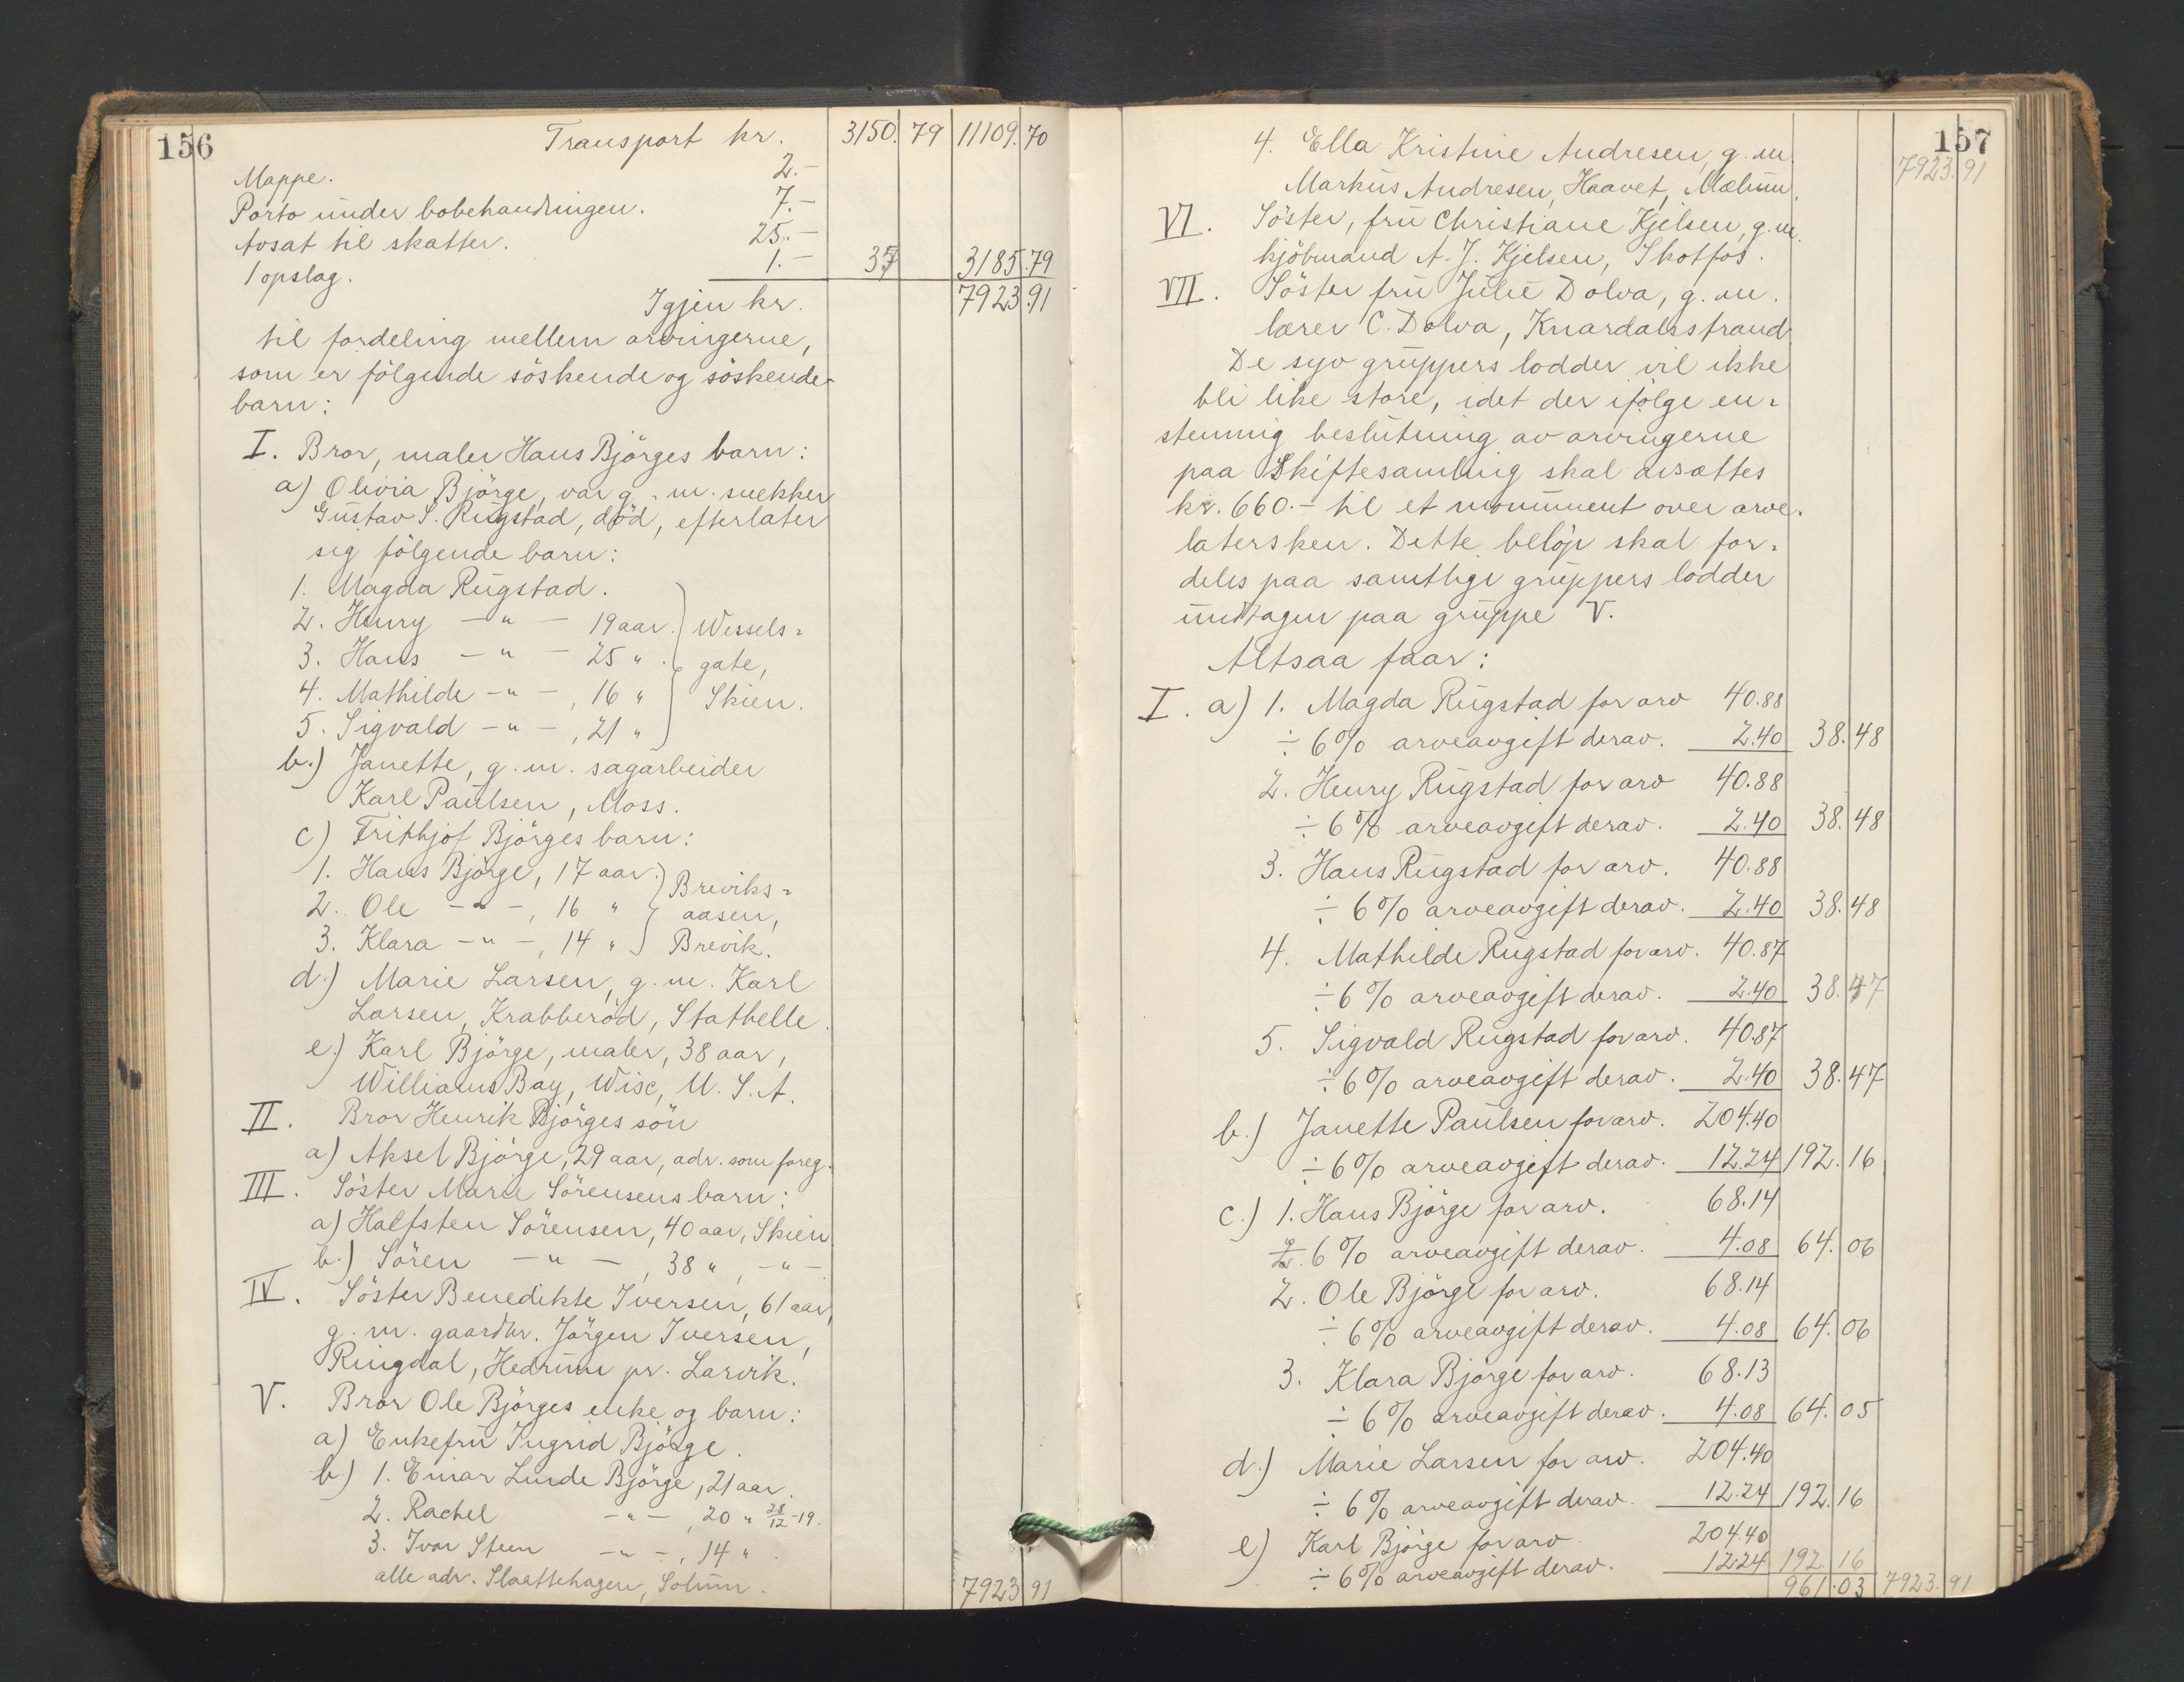 156
Transport kr. 3150.79 11109.70
Mappe. 2.-
Porto under bobehandlingen. 7.-
Avsat til skatter. 25.-
1 opslag. 1.- 35 3185.79
Igjen kr. 7923.91
til fordeling mellem arvingerne,
som er følgende söskende og söskende-
barn:
I. Bror, maler Hans Björges barn:
a) Olivia Björge, var g. m. snekker
Gustav S. Rugstad, död, efterlater
sig fölgende barn:
1. Magda Rugstad.
2. Henry -"- 19 aar. Wessels-
3. Hans -"- 25 ". gate,
4. Mathilde -"-, 16 " Skien.
5. Sigvald -"-, 21 "
b.) Janette, g. m. sagarbeider
Karl Paulsen, Moss.
c) Frithjof Björges barn:
1. Hans Björge, 17 aar. Breviks-
2. Ole -"-, 16 " aasen,
3. Klara -"-, 14 " Brevik.
d.) Marie Larsen, g. m. Karl
Larsen, Krabberöd, Stathelle.
e.) Karl Björge, maler, 38 aar,
Williams Bay, Wisc, U. S. A.
II. Bror Henrik Björges sön
a) Aksel Björge, 29 aar, adr. som foreg.
III. Söster Marie Sörensens barn:
a) Halfsten Sörensen, 40 aar, Skien
b.) Sören -"-, 38 ", -"-
IV. Söster Benedikte Iversen, 61 aar,
g. m. gaardbr. Jörgen Iversen,
Ringdal, Hedrum pr. Larvik.
V. Bror Ole Björges enke og barn:
a) Enkefru Ingrid Björge.
b.) 1. Einar Linde Björge, 21 aar.
2. Rachel -"-, 20 " 28/12-19.
3. Ivar Steen -"-, 14 ".
alle adr. Slaattehagen, Solum.
7923 91
157
4. Ella Kristine Andresen, g. m. 7923.91
Markus Andresen, Haavet, Mælum.
VI. Söster, fru Christiane Kjelsen, g. m.
kjöbmand A. J. Kjelsen, Skotfos.
VII. Söster fru Julie Dolva, g. m.
lærer C. Dolva, Knardalsstrand.
De syv gruppers lodder vil ikke
bli like store, idet der ifölge en-
stemmig beslutning av arvingerne
paa Skiftesamling skal avsættes
kr. 660.- til et monument over arve-
latersken. Dette belöp skal for-
deles paa samtlige gruppers lodder
undtagen paa gruppe V.
Altsaa faar:
I. a) 1. Magda Rugstad for arv 40.88
÷ 6% arveavgift derav. 2.40 38.48
2. Henry Rugstad for arv 40.88
÷ 6% arveavgift derav. 2.40 38.48
3. Hans Rugstad for arv. 40.88
÷ 6% arveavgift derav. 2.40 38.48
4. Mathilde Rugstad for arv. 40.87
÷ 6% arveavgift derav. 2.40 38.47
5. Sigvald Rugstad for arv. 40.87
÷ 6% arveavgift derav. 2.40 38.47
b.) Janette Paulsen for arv. 204.40
÷ 6% arveavgift derav. 12.24 192.16
c.) 1. Hans Björge for arv. 68.14
÷ 6% arveavgift derav. 4.08 64.06
2. Ole Björge for arv. 68.14
÷ 6% arveavgift derav. 4.08 64.06
3. Klara Björge for arv. 68.13
÷ 6% arveavgift derav. 4.08 64.05
d.) Marie Larsen for arv. 204.40
÷ 6% arveavgift derav. 12.24 192.16
e) Karl Björge for arv 204.40
÷ 6% arveavgift derav. 12.24 192.16
961.03 7923.91